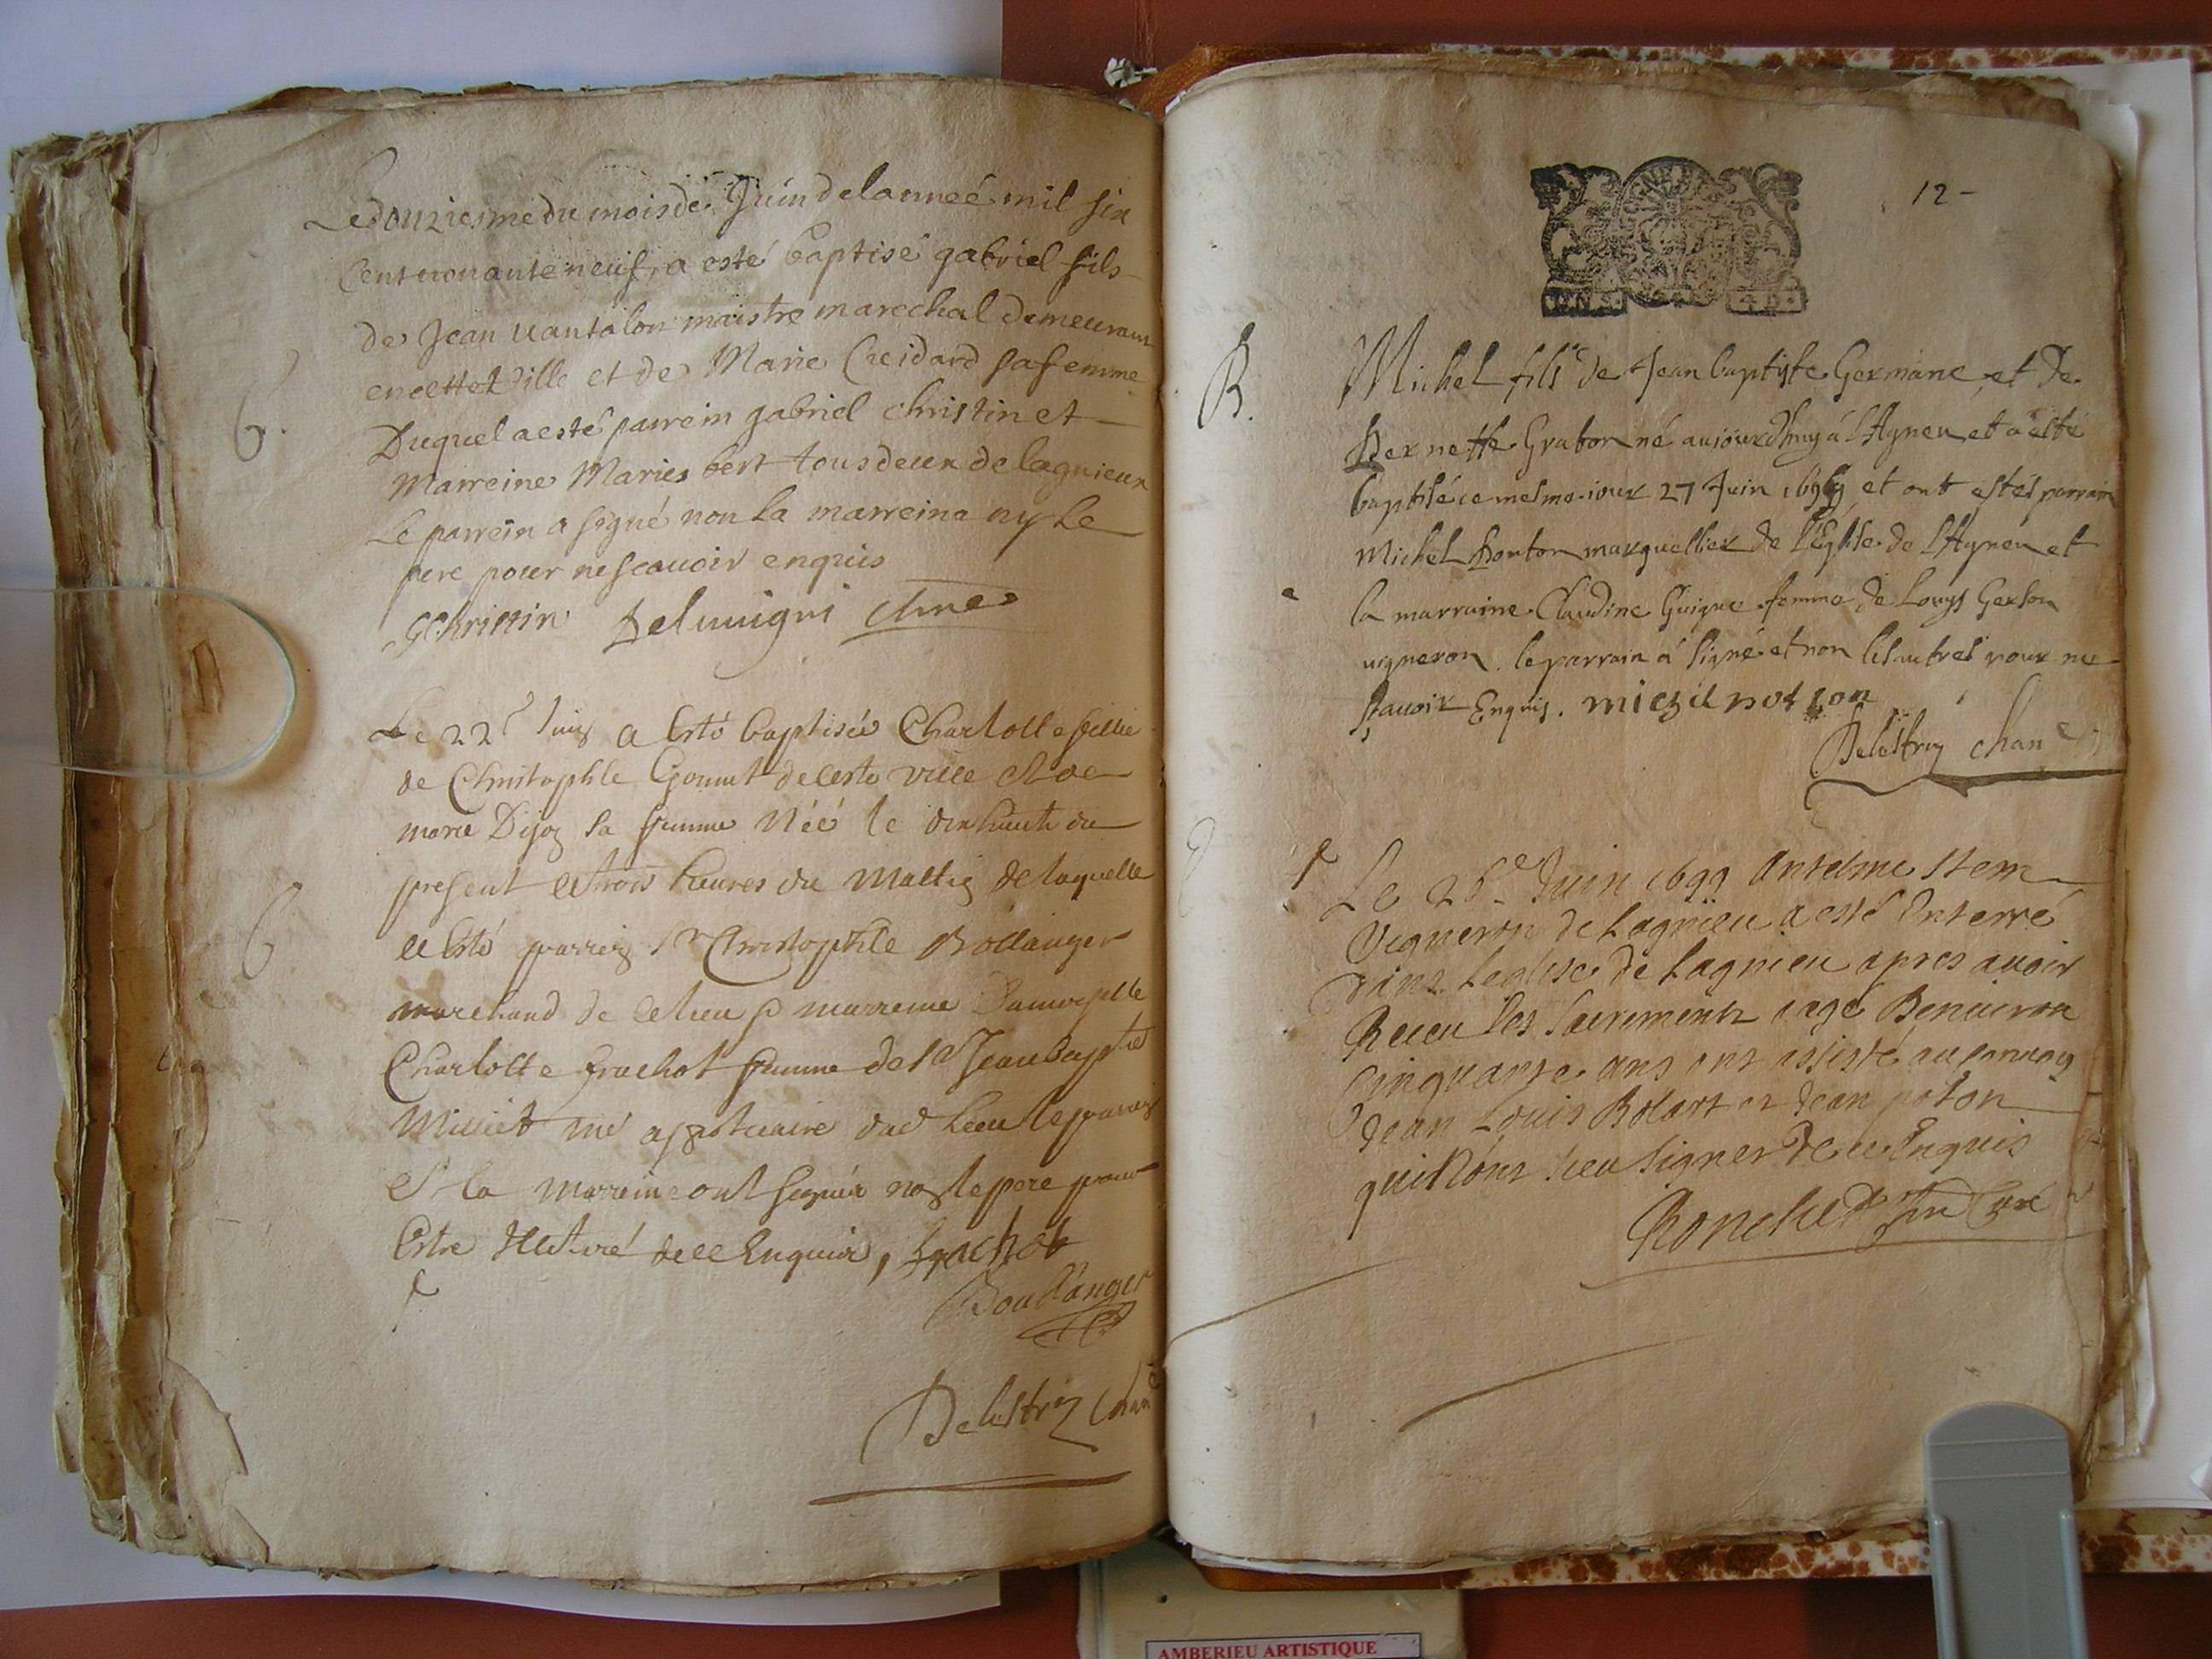 Le douziesme du mois de Juin de lanneé mil six
cent nonante neuf, a esté baptisé gabriel fils
de Jean uantalon maistre marechal demeurant
en cette ville et de Marie Creidard sa femme
Duquel a esté parrein gabriel christin et
Marreine Marie bert tous deux de lagnieux
Le parrein a signé non la marreine ny le
pere pour ne scauoir enquis
GChristin
b.
Le 22e Juin a Esté baptisée Charlotte fillie
de Christophle Gonnet de ceste ville et de
marie Dijoz sa femme Néé le dixhuit du
present a trois heures du Mattin de laquelle
a Esté parrein Sr Christophle Bollanger
marchand de ce lieu & marreine Damoyselle
Charlotte frachot femme de Sr Jean bapte
Milliet me appoticaire dud lieu le parrein
& la marreine ont signés non le pere pour
Estre de ce Enquis, frachot
Boullanger
Delestraz chane
b
12-
B.
Michel fils de Jean baptiste Germane, et de
Pernette Graton né aujourdhuy á lAgneu et á esté
baptisé ce mesme iour 27 Juin 1699 et ont estés parrain
Michel Botton marguellier de l'Eglise de lAgneu et
la marraine Claudine Guigue femme de Louys Gerson
uigneron. le parrain á signé et non les autres pour ne
sçauoir Enquis. michel botton
Delestraz chane
Le 28e Juin 1699 Anselme Item
Vigneron de Lagnieu a esté Enterré
dans Leglise de Lagnieu apres auoir
Receu les Sacrements agé Denuiron
Cinquante ans ont assisté au conuoy
Jean Louis Bolart et Jean poton
qui N'ont sceu signer De ce Enquis
Ronchet Curé
AMBERIEU ARTISTIQUE